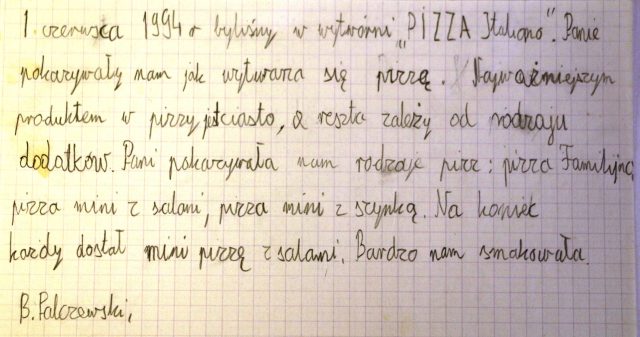 1 czerwca 1994 r byliśmy w wytwórni „PIZZA Italiano". Panie
pokazywały nam jak wytwarza się pizzę. Najważniejszym
produktem w pizzy jest ciasto, a reszta zależy od rodzaju
dodatków. Pani pokazywała nam rodzaje pizz: pizza Familijna,
pizza mini z salami, pizza mini z szynką. Na koniec
każdy dostał mini pizzę z salami. Bardzo nam smakowała.
B. Palczewski,